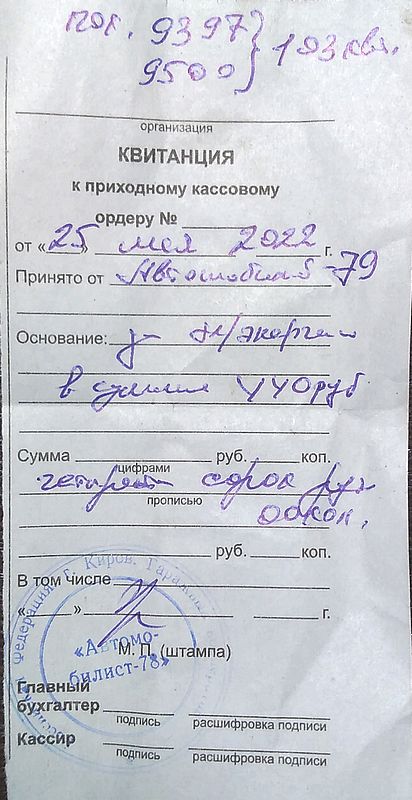 пок. 9397 } 103 квт.
9500
организация
КВИТАНЦИЯ
к приходному кассовому
ордеру №
от «25» мая 2022 г.
Принято от Автомобилист-79
Основание: за эл/энергию
в сумме 440 руб
Сумма руб. коп.
цифрами
четыреста сорок руб
прописью
00 коп.
руб. коп.
В том числе
« » г.
М. П. (штампа)
Федерация г. Киров. Гаражн
«Автомо-
билист-78»
Главный
бухгалтер
подпись расшифровка подписи
Кассир
подпись расшифровка подписи